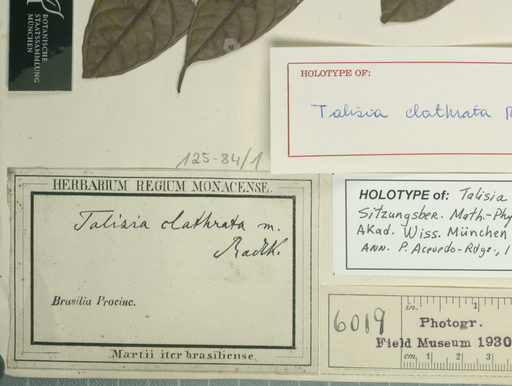 BOTANISCHE
STAATSSAMMLUNG
MÜNCHEN
HOLOTYPE OF:
Talisia clathrata R
125-84/1
HERBARIUM REGIUM MONACENSE.
Talisia clathrata m.
Radlk.
Brasilia Provinc.
Martii iter brasiliense.
HOLOTYPE of: Talisia
Sitzungsber. Math.-Phy
Akad. Wiss. München
ANN. P. Acevedo-Rdgz., 1
6019
in. 1
Photogr.
Field Museum 1930
cm 1 2 3